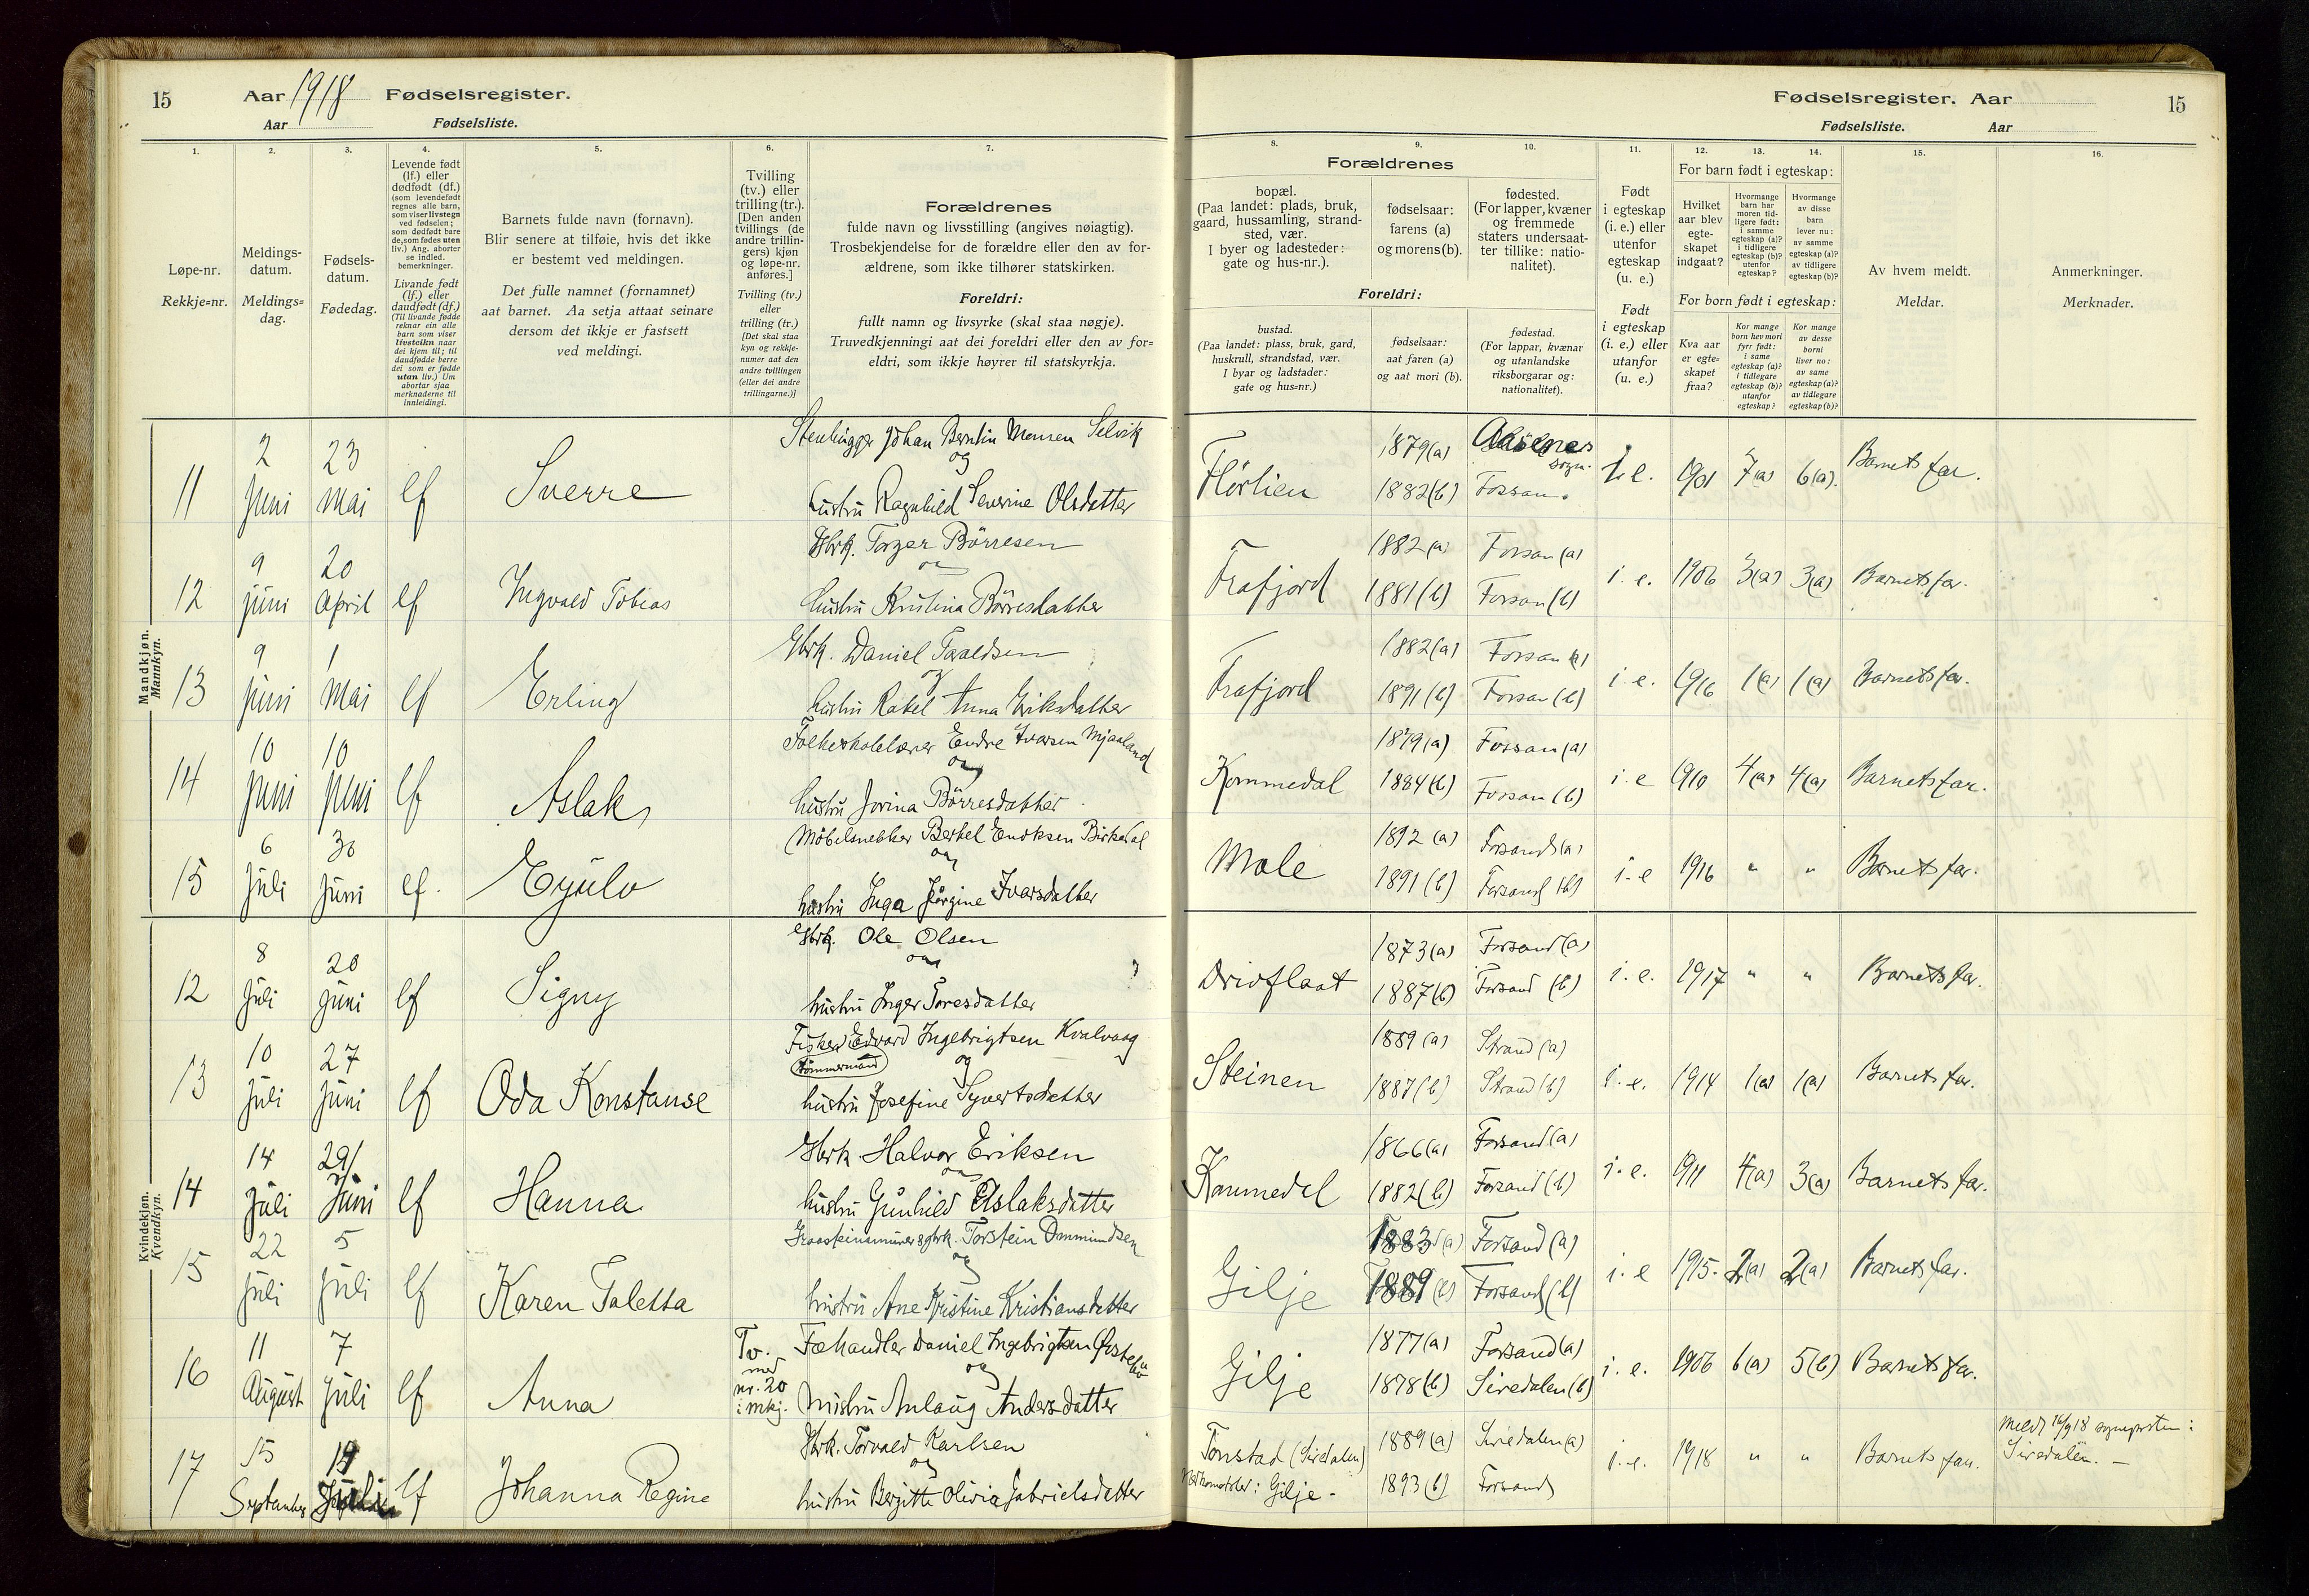 15 Aar 1918 Fødselsregister.
Aar Fødselsliste.
Fødselsregister. Aar 15
Fødselsliste. Aar
1. 2. 3. 4. 5. 6. 7.
Løpe-nr.
Rekkje=nr.
Meldings-
datum.
Meldings=
dag.
Fødsels-
datum.
Fødedag.
Levende født
(lf.) eller
dødfødt (df.)
(som levendefødt
regnes alle barn,
som viser livstegn
ved fødselen;
som dødfødt bare
de, som fødes uten
liv.) Ang. aborter
se indled.
bemerkninger.
Livande født
(lf.) eller
daudfødt (df.)
(Til livande fødde
reknar ein alle
barn som viser
livsteikn naar
dei kjem til; til
daudfødde berre
dei som er fødde
utan liv.) Um
abortar sjaa
merknaderne til
innleidingi.
Barnets fulde navn (fornavn).
Blir senere at tilføie, hvis det ikke
er bestemt ved meldingen.
Det fulle namnet (fornamnet)
aat barnet. Aa setja attaat seinare
dersom det ikkje er fastsett
ved meldingi.
Tvilling
(tv.) eller
trilling (tr.).
[Den anden
tvillings (de
andre trillin-
gers) kjøn
og løpe-nr.
anføres.]
Tvilling (tv.)
eller
trilling (tr.)
[Det skal staa
kyn og rekkje-
numer aat den
andre tvillingen
(eller dei andre
trillingarne.)]
Forældrenes
fulde navn og livsstilling (angives nøiagtig).
Trosbekjendelse for de forældre eller den av for-
ældrene, som ikke tilhører statskirken.
Foreldri:
fullt namn og livsyrke (skal staa nøgje).
Truvedkjenningi aat dei foreldri eller den av for=
eldri, som ikkje høyrer til statskyrkja.
8. 9. 10. 11. 12. 13. 14. 15. 16.
Forældrenes
bopæl.
(Paa landet: plads, bruk,
gaard, hussamling, strand-
sted, vær.
I byer og ladesteder:
gate og hus-nr.).
fødselsaar:
farens (a)
og morens (b).
fødested.
(For lapper, kvæner
og fremmede
staters undersaat-
ter tillike: natio-
nalitet).
Foreldri:
bustad.
(Paa landet: plass, bruk, gard,
huskrull, strandstad, vær.
I byar og ladstader:
gate og hus=nr.)
fødselsaar:
aat faren (a)
og aat mori (b).
fødestad.
(For lappar, kvænar
og utanlandske
riksborgarar og:
nationalitet).
Født
i egteskap
(i. e.) eller
utenfor
egteskap
(u. e.)
Født
i egteskap
(i. e.) eller
utanfor
(u. e.)
For barn født i egteskap:
Hvilket
aar blev
egte-
skapet
indgaat?
Hvormange
barn har
moren tid-
ligere født:
i samme
egteskap (a)?
i tidligere
egteskap (b)?
utenfor
egteskap?
Hvormange
av disse
barn
lever nu:
av samme
egteskap (a)?
av tidligere
egteskap (b)?
For born født i egteskap:
Kva aar
er egte-
skapet
fraa?
Kor mange
born hev mori
fyrr født:
i same
egteskap (a)?
i tidlegare
egteskap (b)?
utanfor
egteskap?
Kor mange
av desse
borni
liver no:
av same
egteskap (a)?
av tidlegare
egteskap (b)?
Av hvem meldt.
Meldar.
Anmerkninger.
Merknader.
Mandkjøn.
Mannkyn.
11 2 Juni 23 Mai lf Sverre
Johan Berntin Monsen Selvik
og
hustru Ragnhild Severine Olsdatter
Flörlien 1879(a) sogn.
1882(b) Fossan. i. e. 1901 7(a) 6(a). Barnets far.
12 9 juni 20 April lf Ingvald Tobias
Gbrk. Torger Börresen
og
hustru Kristina Börresdatter
Frafjord 1882(a) Fossan(a)
1881(b) Fossan(b) i. e. 1906 3(a) 3(a) Barnets far.
13 9 juni 1 Mai lf Erling
Gbrk. Daniel Taraldsen
og
hustru Rakel Anna Eriksdatter
Frafjord 1882(a) Fossan(a)
1891(b) Fossan(b) i. e. 1916 1(a) 1(a) Barnets far.
14 10 juni 10 juni lf Aslak
Folkeskolelærer Endre Ivarsen Mjaaland
og
hustru Jorina Börresdatter
Kommedal 1879(a) Fossan(a)
1884(b) Fossan(b) i. e 1910 4(a) 4(a) Barnets far.
15 6 juli 30 juni lf. Eyulv
Möbelsnekker Bertel Endresen Birkedal
og
hustru Inga Jörgine Ivarsdatter
Mole 1892(a) Forsand(a)
1891(b) Forsand(b) i. e 1916 " " Barnets far.
Kvindekjøn.
Kvendkyn.
12 8 juli 20 juni lf Signy
Gbrk. Ole Olsen
og
hustru Inger Toresdatter
Drivflaat 1873(a) Forsand(a)
1887(b) Forsand (b) i. e. 1917 " " Barnets far.
13 10 juli 27 juni lf Oda Konstanse
Fisker Edvard Ingebrigtsen Kvalvaag
Tömmermand og
hustru Josefine Syvertsdatter
Steinen 1889(a) Strand(a)
1887(b) Strand(b) i. e. 1914 1(a) 1(a) Barnets far.
14 14 juli 29/ juni lf Hanna
Gbrk. Halvor Eriksen
og
hustru Gunhild Aslaksdatter
Kommedal 1866(a) Forsand(a)
1882(b) Forsand(b) i. e. 1911 4(a) 3(a) Barnets far.
15 22 juli 5 juli lf Karen Taletta
Torstein Ommundsen
og
hustru Ane Kristine Kristiansdatter
Gilje 1883(a) Forsand(a)
1889(b) Forsand(b) i. e 1915. 2(a) 2(a) Barnets far.
16 11 August 7 juli lf Anna
Tv. med nr. 20 i mkj.
Fæhandler Daniel Ingebrigtsen
og
hustru Anlaug Andersdatter
Gilje 1877(a) Forsand(a)
1878(b) Siredalen(b) i. e. 1906 6(a) 5(b) Barnets far.
17 15 September lf Johanna Regine
Gbrk. Torvald Karlsen
og
hustru Bergitte Olivia Gabrielsdatter
Tonstad (Siredalen) 1889(a) Siredalen(a)
Gilje. 1893(b) Forsand i. e. 1918 " " Barnets far.
Meldt
Siredalen. —